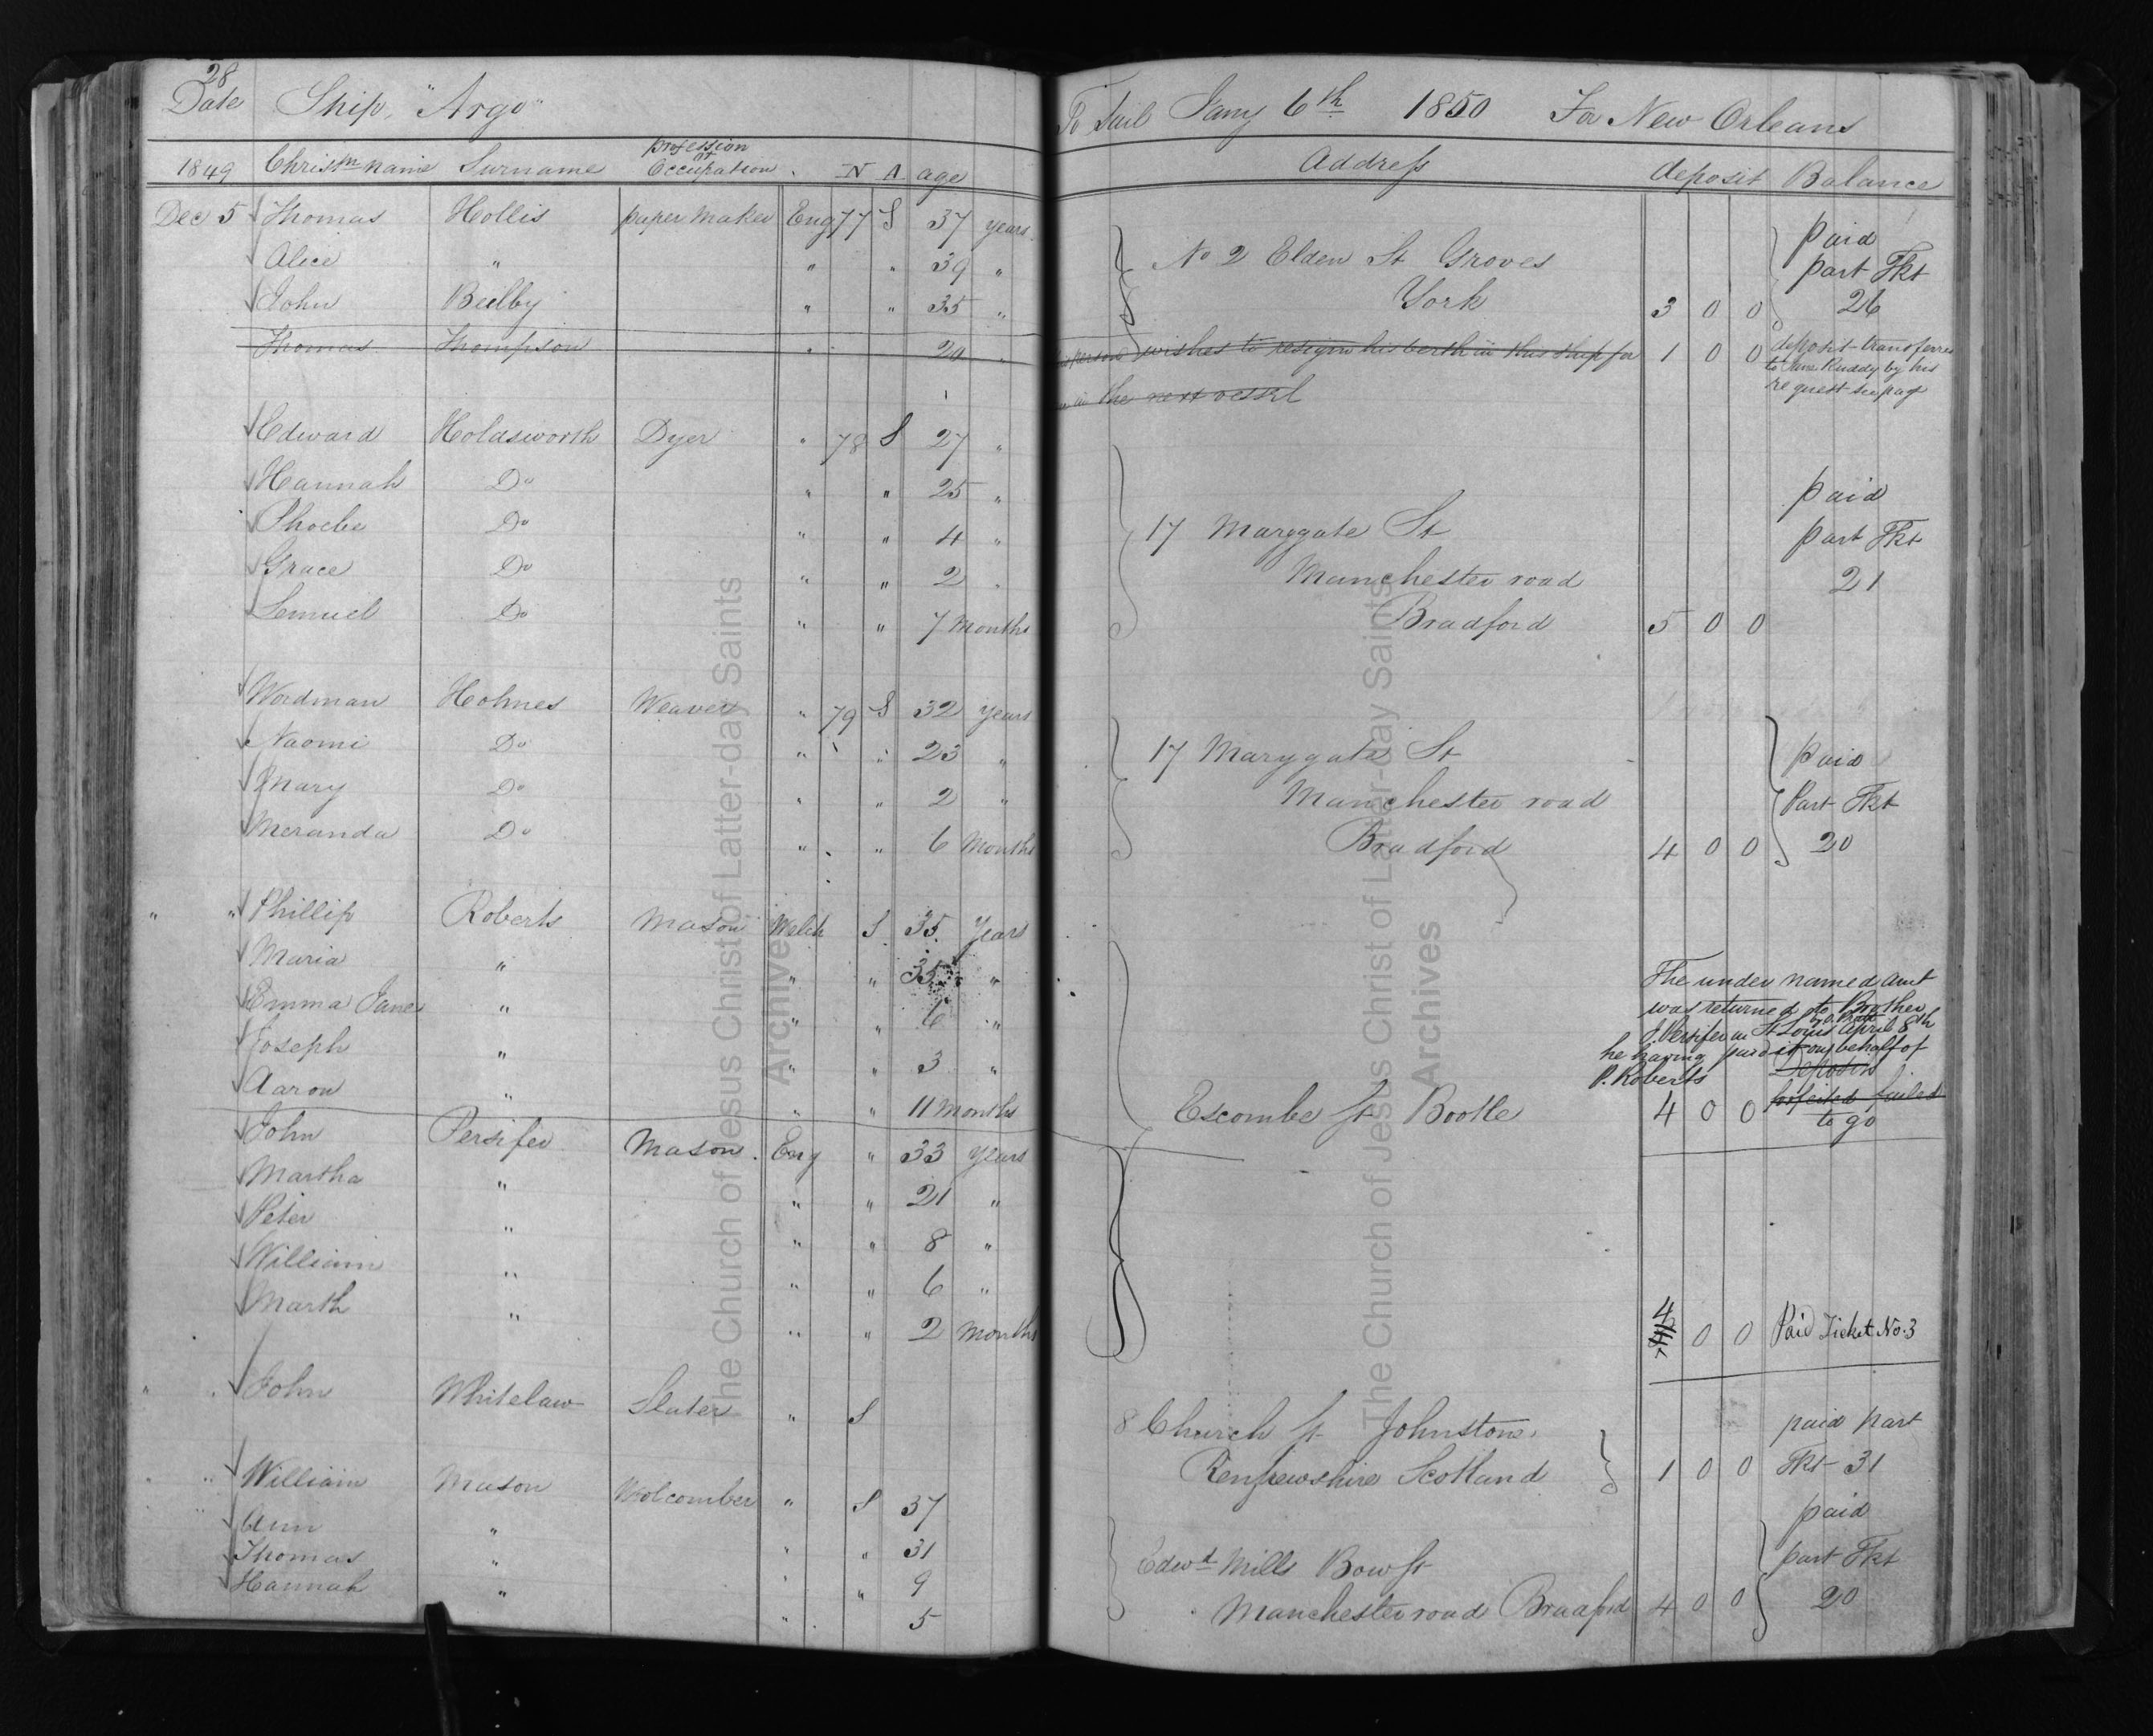 28
Date Ship, "Argo" To Sail Jany 6th 1850 For New Orleans
1849 Christn name Surname profession or Occupation. N A age Address deposit Balance
Dec 5 Thomas Hollis paper maker Eng 77 S 37 years
Alice " " " 39 " No 2 Elden St Groves paid part Tkt
John Beelby " " 35 " York 3 0 0 26
Thomas Thompson " 20 " person wishes to resign his berth in this ship for 1 0 0 deposit transferred
to Jane Ruddy by his
in the next vessel request see page
Edward Holdsworth Dyer " 78 S 27 "
Hannah Do " " 25 " paid
Phoebe Do " " 4 " 17 Marygate St part Tkt
Grace Do " " 2 " Manchester road 21
Lemuel Do " " 7 Months Bradford 5 0 0
Woodman Holmes Weaver " 79 S 32 years
Naomi Do " " 23 " 17 Marygate St paid
Mary Do " " 2 " Manchester road Part Tkt
Meranda Do " " 6 Months Bradford 4 0 0 20
" " Phillip Roberts Mason Welch S 35 Years
Maria " " " 35 " The under named amt
Emma Jane " " " 6 " was returned to Brother
by O. Pratt
J. Persifer in St Louis April 8th
Joseph " " " 3 " he having paid it on behalf of
P. Roberts Deposit
Aaron " " " 11 months Escombe St Bootle 4 0 0 forfeited failed
to go
John Persifer Mason. Eng " 33 years
Martha " " " 21 "
Peter " " " 8 "
William " " " 6 "
Marth " " " 2 months 4 0 0 Paid Ticket No. 3
" " John Whitelaw Slater " S 8 Church St Johnstone paid part
Renfrewshire Scotland 1 0 0 Tkt 31
" " William Mason Woolcomber " S 37
Ann " " " 31 paid
Thomas " " " 9 Edwd Mills Bow St part Tkt
Hannah " " 5 Manchester road Bradford 4 0 0 20
The Church of Jesus Christ of Latter-day Saints
Archives
The Church of Jesus Christ of Latter-day Saints
Archives